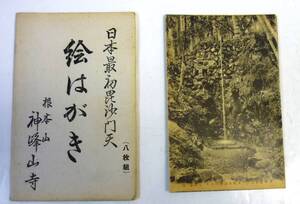 日本最初毘沙門天
（八枚組）
絵はがき
根本山
神峰山寺